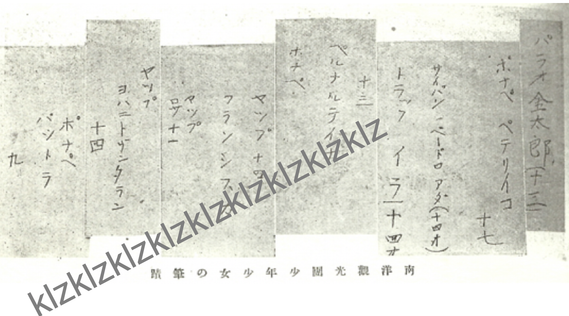 パラオ 金太郎(十二)
ポナペ ペテリイコ
十七
サイパン ペードロ アダ(十四才)
トラック イラ(十四才
十三
ペルナルテイタ
ポナペ
ヤップ 十四
フランシブ
ヤップ
ロサ十一
ヤップ
ヨハニトザンタラン
十四
ポナペ
パントラ
九
南洋觀光團少年少女の筆蹟
klzklzklzklzklzklzklzklzklzklzklz